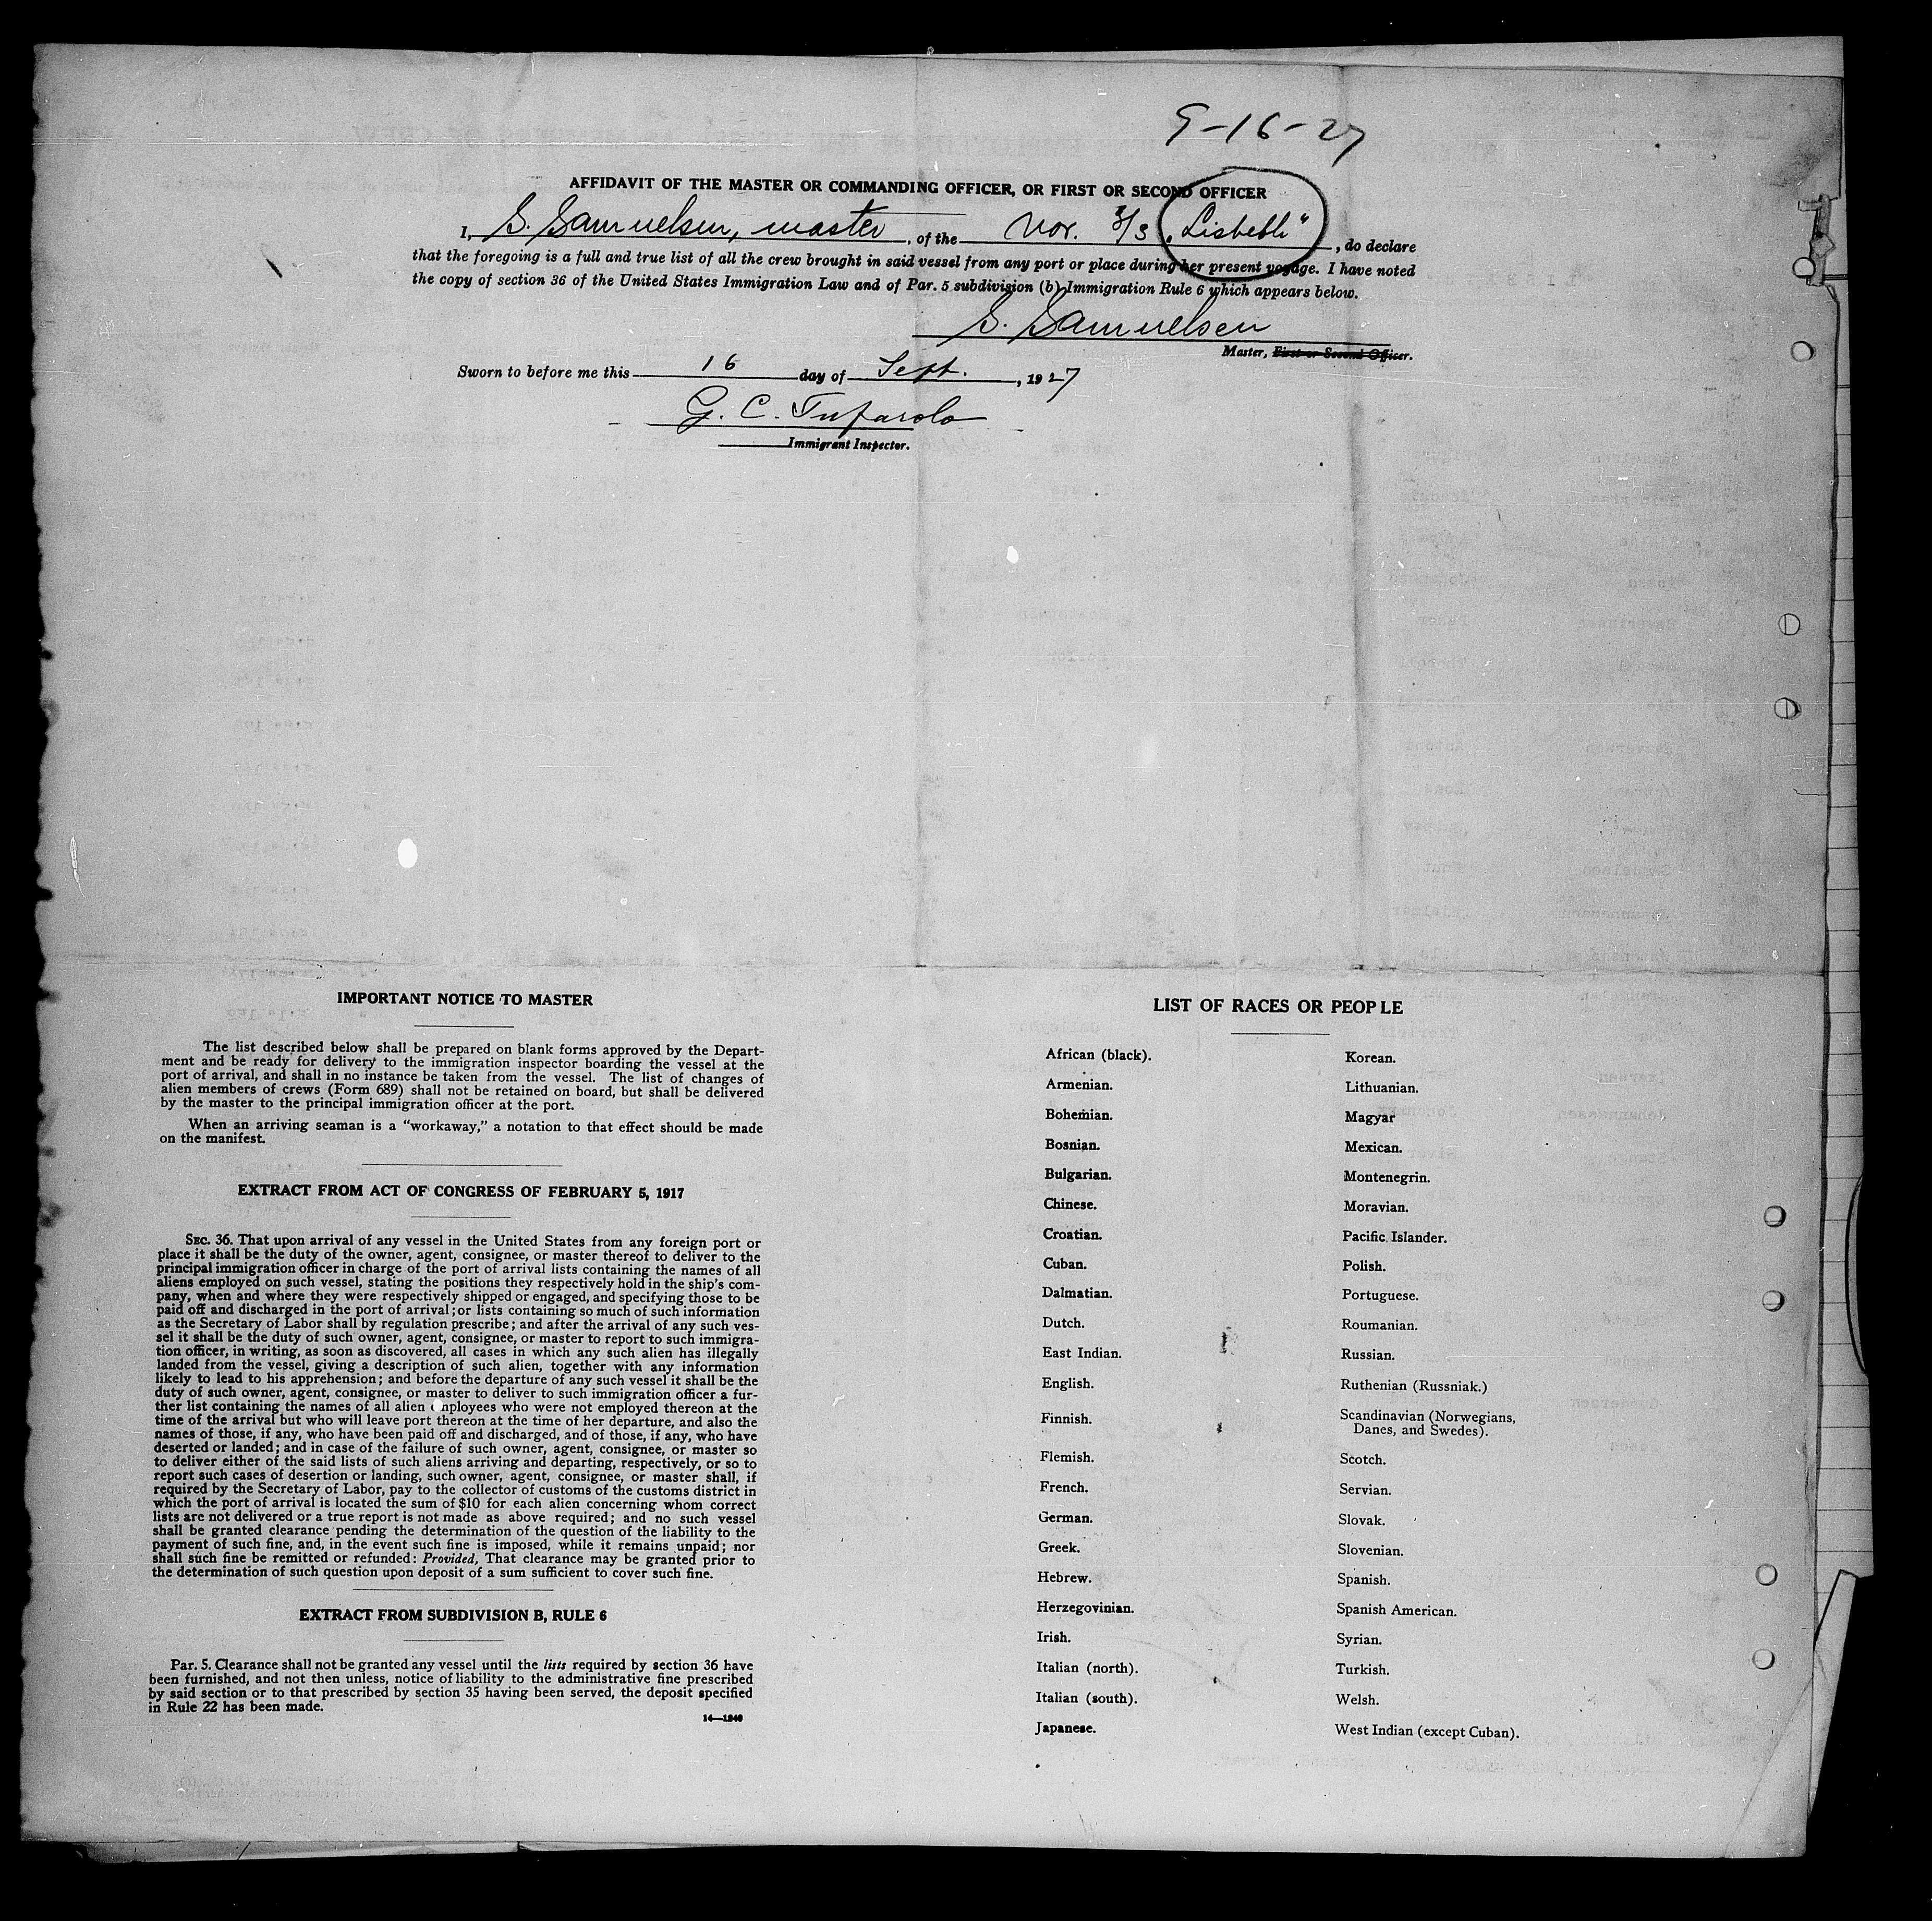 9-16-27
AFFIDAVIT OF THE MASTER OR COMMANDING OFFICER, OR FIRST OR SECOND OFFICER
I, S. Samuelsen, master, of the Nor. S/S „Lisbeth“, do declare
that the foregoing is a full and true list of all the crew brought in said vessel from any port or place during her present voyage. I have noted
the copy of section 36 of the United States Immigration Law and of Par. 5 subdivision (b) Immigration Rule 6 which appears below.
S. Samuelsen
Master, First or Second Officer.
Sworn to before me this 16 day of Sept., 1927
G. C.
Immigrant Inspector.
IMPORTANT NOTICE TO MASTER
The list described below shall be prepared on blank forms approved by the Depart-
ment and be ready for delivery to the immigration inspector boarding the vessel at the
port of arrival, and shall in no instance be taken from the vessel. The list of changes of
alien members of crews (Form 689) shall not be retained on board, but shall be delivered
by the master to the principal immigration officer at the port.
When an arriving seaman is a "workaway," a notation to that effect should be made
on the manifest.
EXTRACT FROM ACT OF CONGRESS OF FEBRUARY 5, 1917
SEC. 36. That upon arrival of any vessel in the United States from any foreign port or
place it shall be the duty of the owner, agent, consignee, or master thereof to deliver to the
principal immigration officer in charge of the port of arrival lists containing the names of all
aliens employed on such vessel, stating the positions they respectively hold in the ship's com-
pany, when and where they were respectively shipped or engaged, and specifying those to be
paid off and discharged in the port of arrival; or lists containing so much of such information
as the Secretary of Labor shall by regulation prescribe; and after the arrival of any such ves-
sel it shall be the duty of such owner, agent, consignee, or master to report to such immigra-
tion officer, in writing, as soon as discovered, all cases in which any such alien has illegally
landed from the vessel, giving a description of such alien, together with any information
likely to lead to his apprehension; and before the departure of any such vessel it shall be the
duty of such owner, agent, consignee, or master to deliver to such immigration officer a fur-
ther list containing the names of all alien employees who were not employed thereon at the
time of the arrival but who will leave port thereon at the time of her departure, and also the
names of those, if any, who have been paid off and discharged, and of those, if any, who have
deserted or landed; and in case of the failure of such owner, agent, consignee, or master so
to deliver either of the said lists of such aliens arriving and departing, respectively, or so to
report such cases of desertion or landing, such owner, agent, consignee, or master shall, if
required by the Secretary of Labor, pay to the collector of customs of the customs district in
which the port of arrival is located the sum of $10 for each alien concerning whom correct
lists are not delivered or a true report is not made as above required; and no such vessel
shall be granted clearance pending the determination of the question of the liability to the
payment of such fine, and, in the event such fine is imposed, while it remains unpaid; nor
shall such fine be remitted or refunded: Provided, That clearance may be granted prior to
the determination of such question upon deposit of a sum sufficient to cover such fine.
EXTRACT FROM SUBDIVISION B, RULE 6
Par. 5. Clearance shall not be granted any vessel until the lists required by section 36 have
been furnished, and not then unless, notice of liability to the administrative fine prescribed
by said section or to that prescribed by section 35 having been served, the deposit specified
in Rule 22 has been made.
14—1240
LIST OF RACES OR PEOPLE
African (black).
Armenian.
Bohemian.
Bosnian.
Bulgarian.
Chinese.
Croatian.
Cuban.
Dalmatian.
Dutch.
East Indian.
English.
Finnish.
Flemish.
French.
German.
Greek.
Hebrew.
Herzegovinian.
Irish.
Italian (north).
Italian (south).
Japanese.
Korean.
Lithuanian.
Magyar
Mexican.
Montenegrin.
Moravian.
Pacific Islander.
Polish.
Portuguese.
Roumanian.
Russian.
Ruthenian (Russniak.)
Scandinavian (Norwegians,
Danes, and Swedes).
Scotch.
Servian.
Slovak.
Slovenian.
Spanish.
Spanish American.
Syrian.
Turkish.
Welsh.
West Indian (except Cuban).